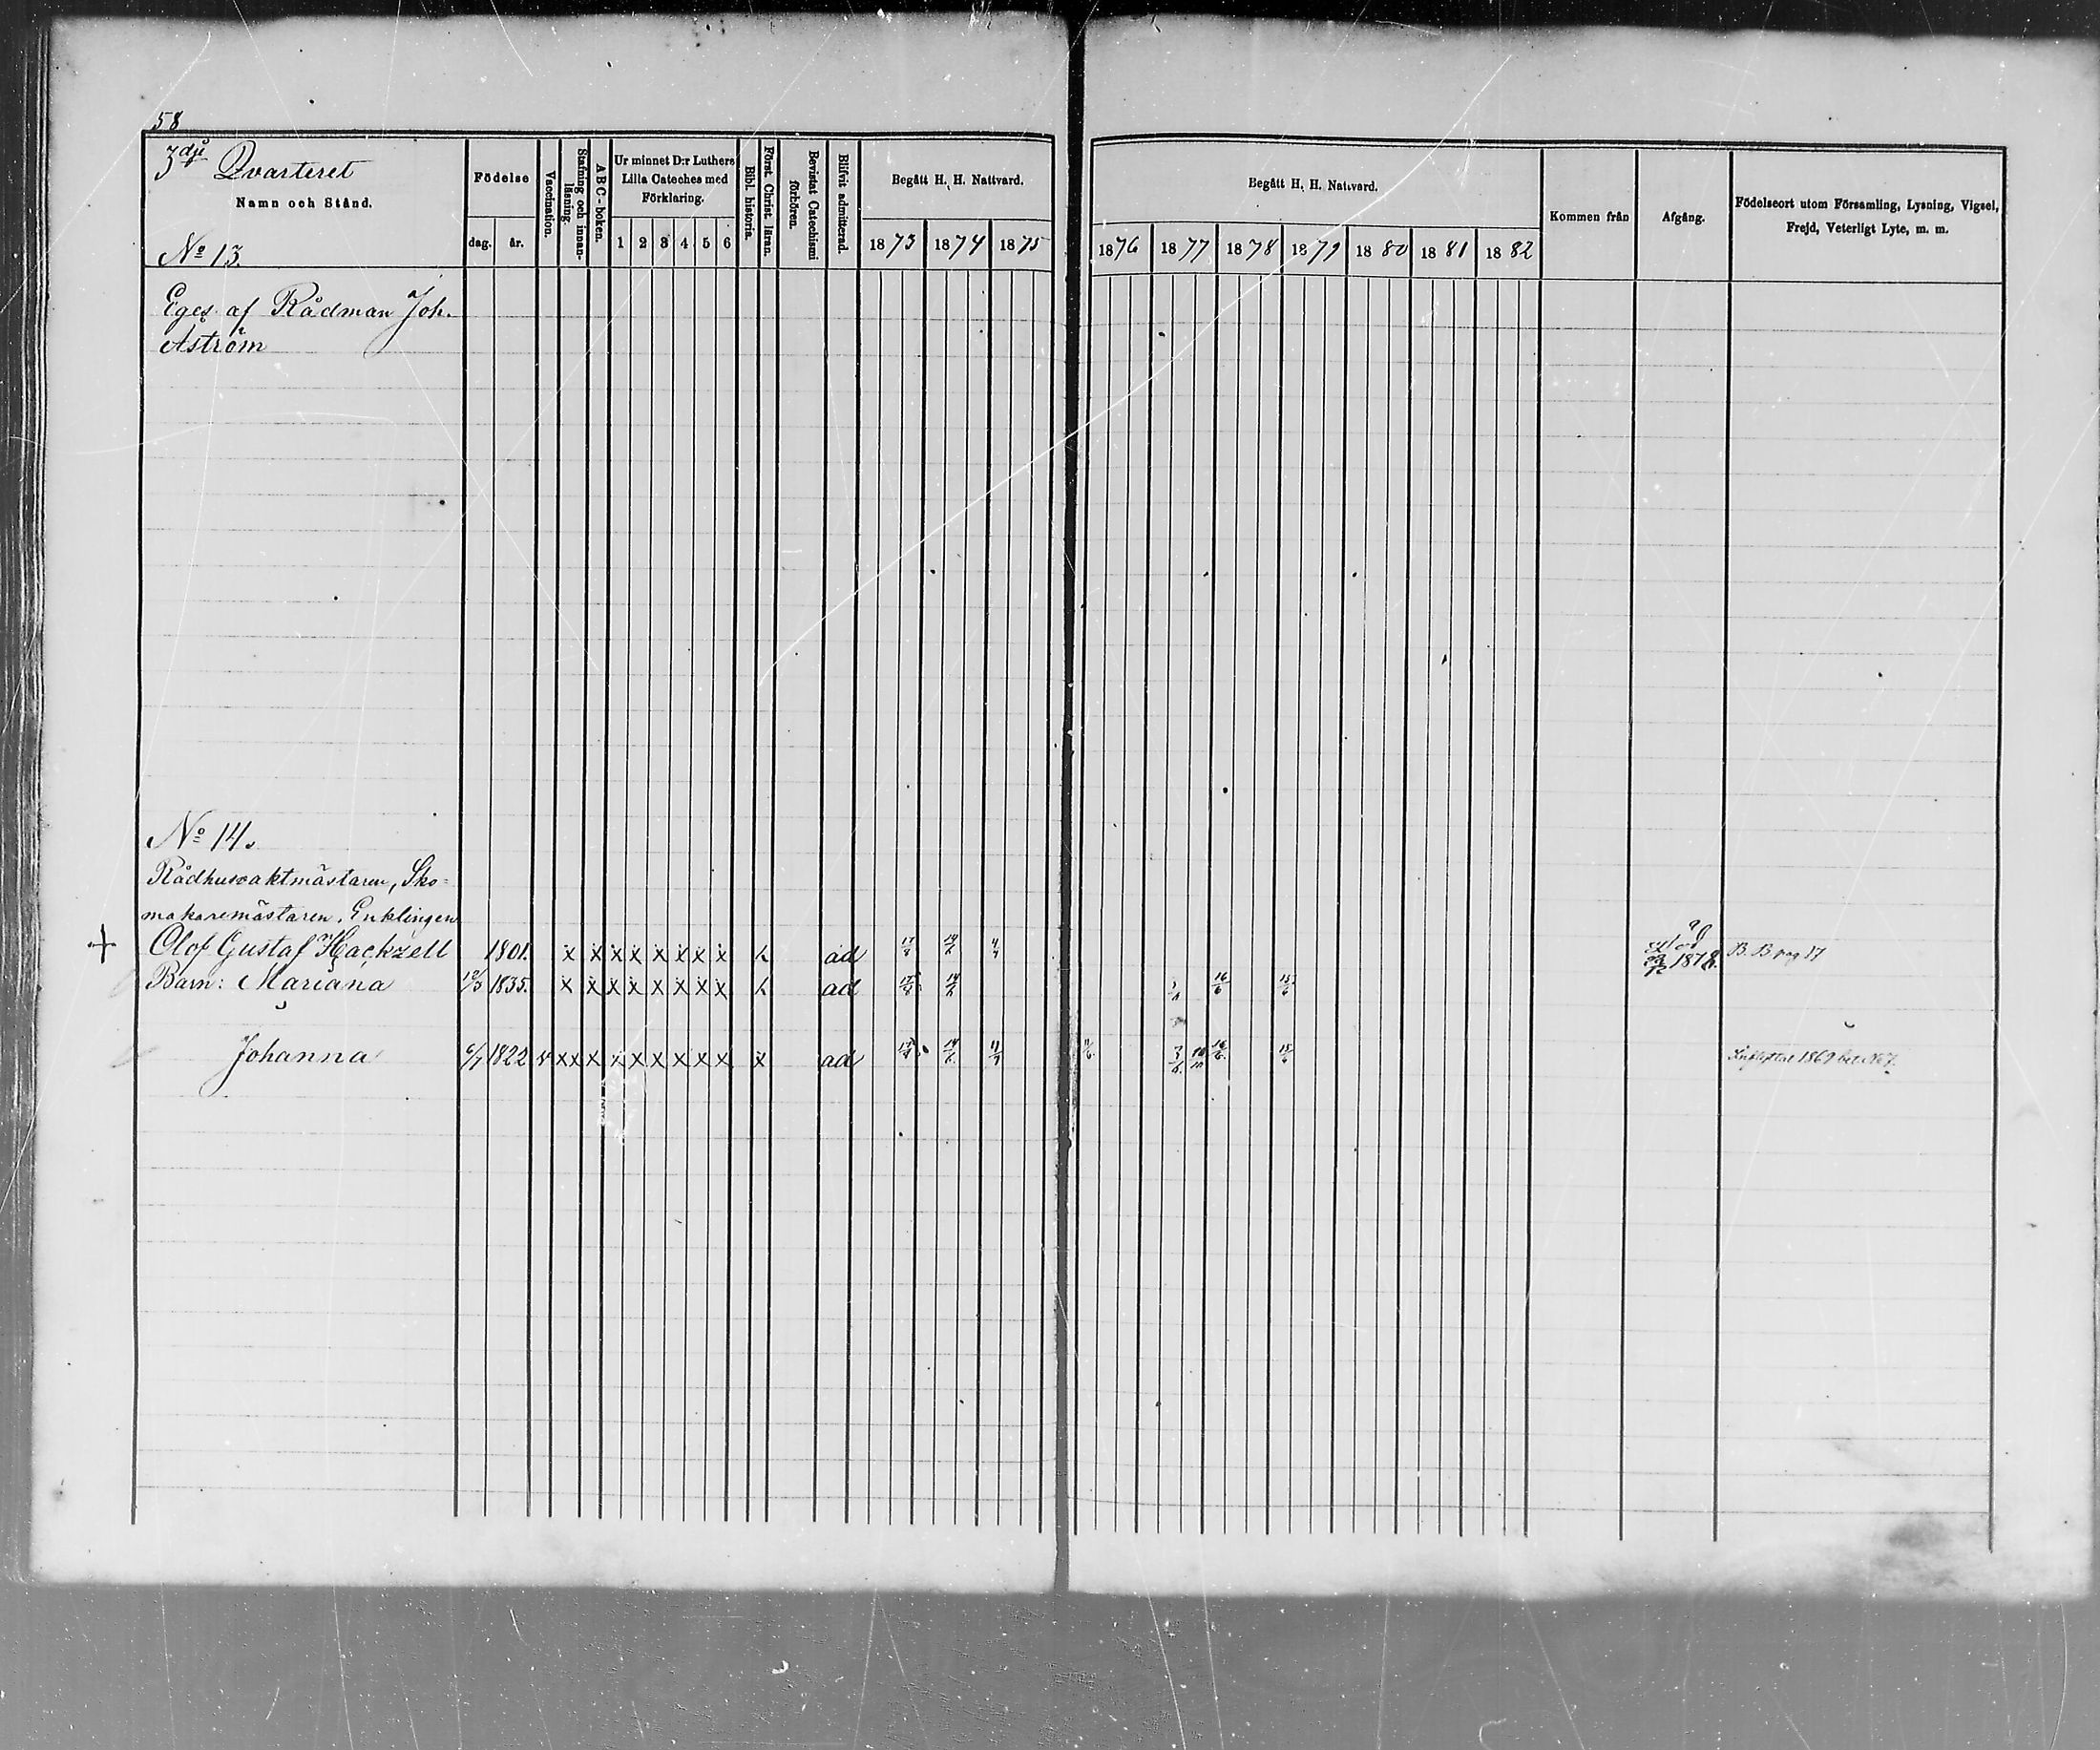 58
3dje Qvarteret
Namn och Stånd.
No 13.
Födelse
dag. år.
Vaccination.
Stafning och innan-läsning.
A B C - boken.
Ur minnet D:r Luthers
Lilla Cateches med
Förklaring.
1 2 3 4 5 6
Bibl. historia.
Först. Christ. läran.
Bevistat Catechismi förhören.
Blifvit admitterad.
Begått H. H. Nattvard.
1873 1874 1875
Begått H. H. Nattvard.
1876 1877 1878 1879 1880 1881 1882
Kommen från
Afgång.
Födelseort utom Församling, Lysning, Vigsel,
Frejd, Veterligt Lyte, m. m.
Eges af Rådman Joh.
Åström
No 14.
Rådhusvaktmästaren, Sko-
makaremästaren, Enklingen
+ Olof Gustaf Hackzell 1801. x x x x x x x x ad 14/6 1878. B. B pag 17
Barn: Mariana 1835. x x x x x x x x ad 14/6 16/6 15/6
Johanna 6/7 1822 v x x x x x x x x x x ad 14/6 3/6 16/6 15/6 1869